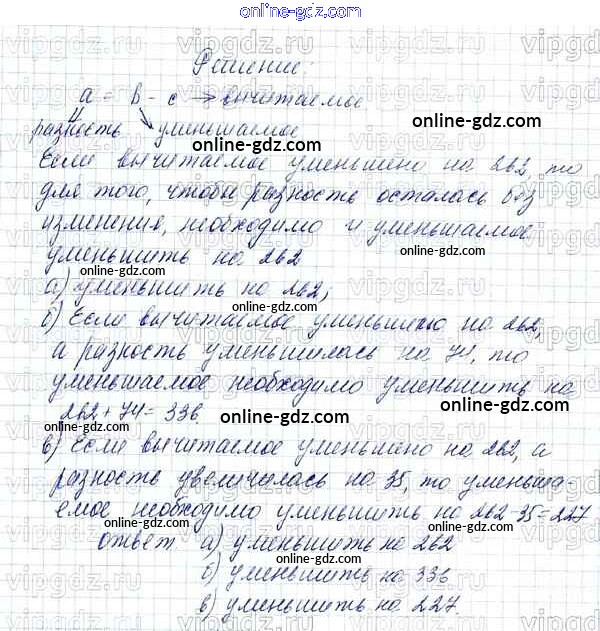 online-gdz.com
Решение:
a = в - с → вычитаемое
online-gdz.com
разность уменьшаемое
online-gdz.com
Если вычитаемое уменьшено на 262, то
для того, чтобы разность осталась без
online-gdz.com
изменения, необходимо и уменьшаемое
online-gdz.com
уменьшить на 262
online-gdz.com
а) уменьшить на 262;
online-gdz.com
б) Если вычитаемое уменьшено на 262,
online-gdz.com
а разность уменьшилась на 74, то
уменьшаемое необходимо уменьшить на
online-gdz.com
262 + 74 = 336.
online-gdz.com
в) Если вычитаемое уменьшено на 262, а
online-gdz.com
разность увеличилась на 35, то уменьша-
емое необходимо уменьшить на 262-35=227
online-gdz.com
online-gdz.com
ответ а) уменьшить на 262
online-gdz.com
б) уменьшить на 336
online-gdz.com
в) уменьшить на 227.
vipgdz.ru